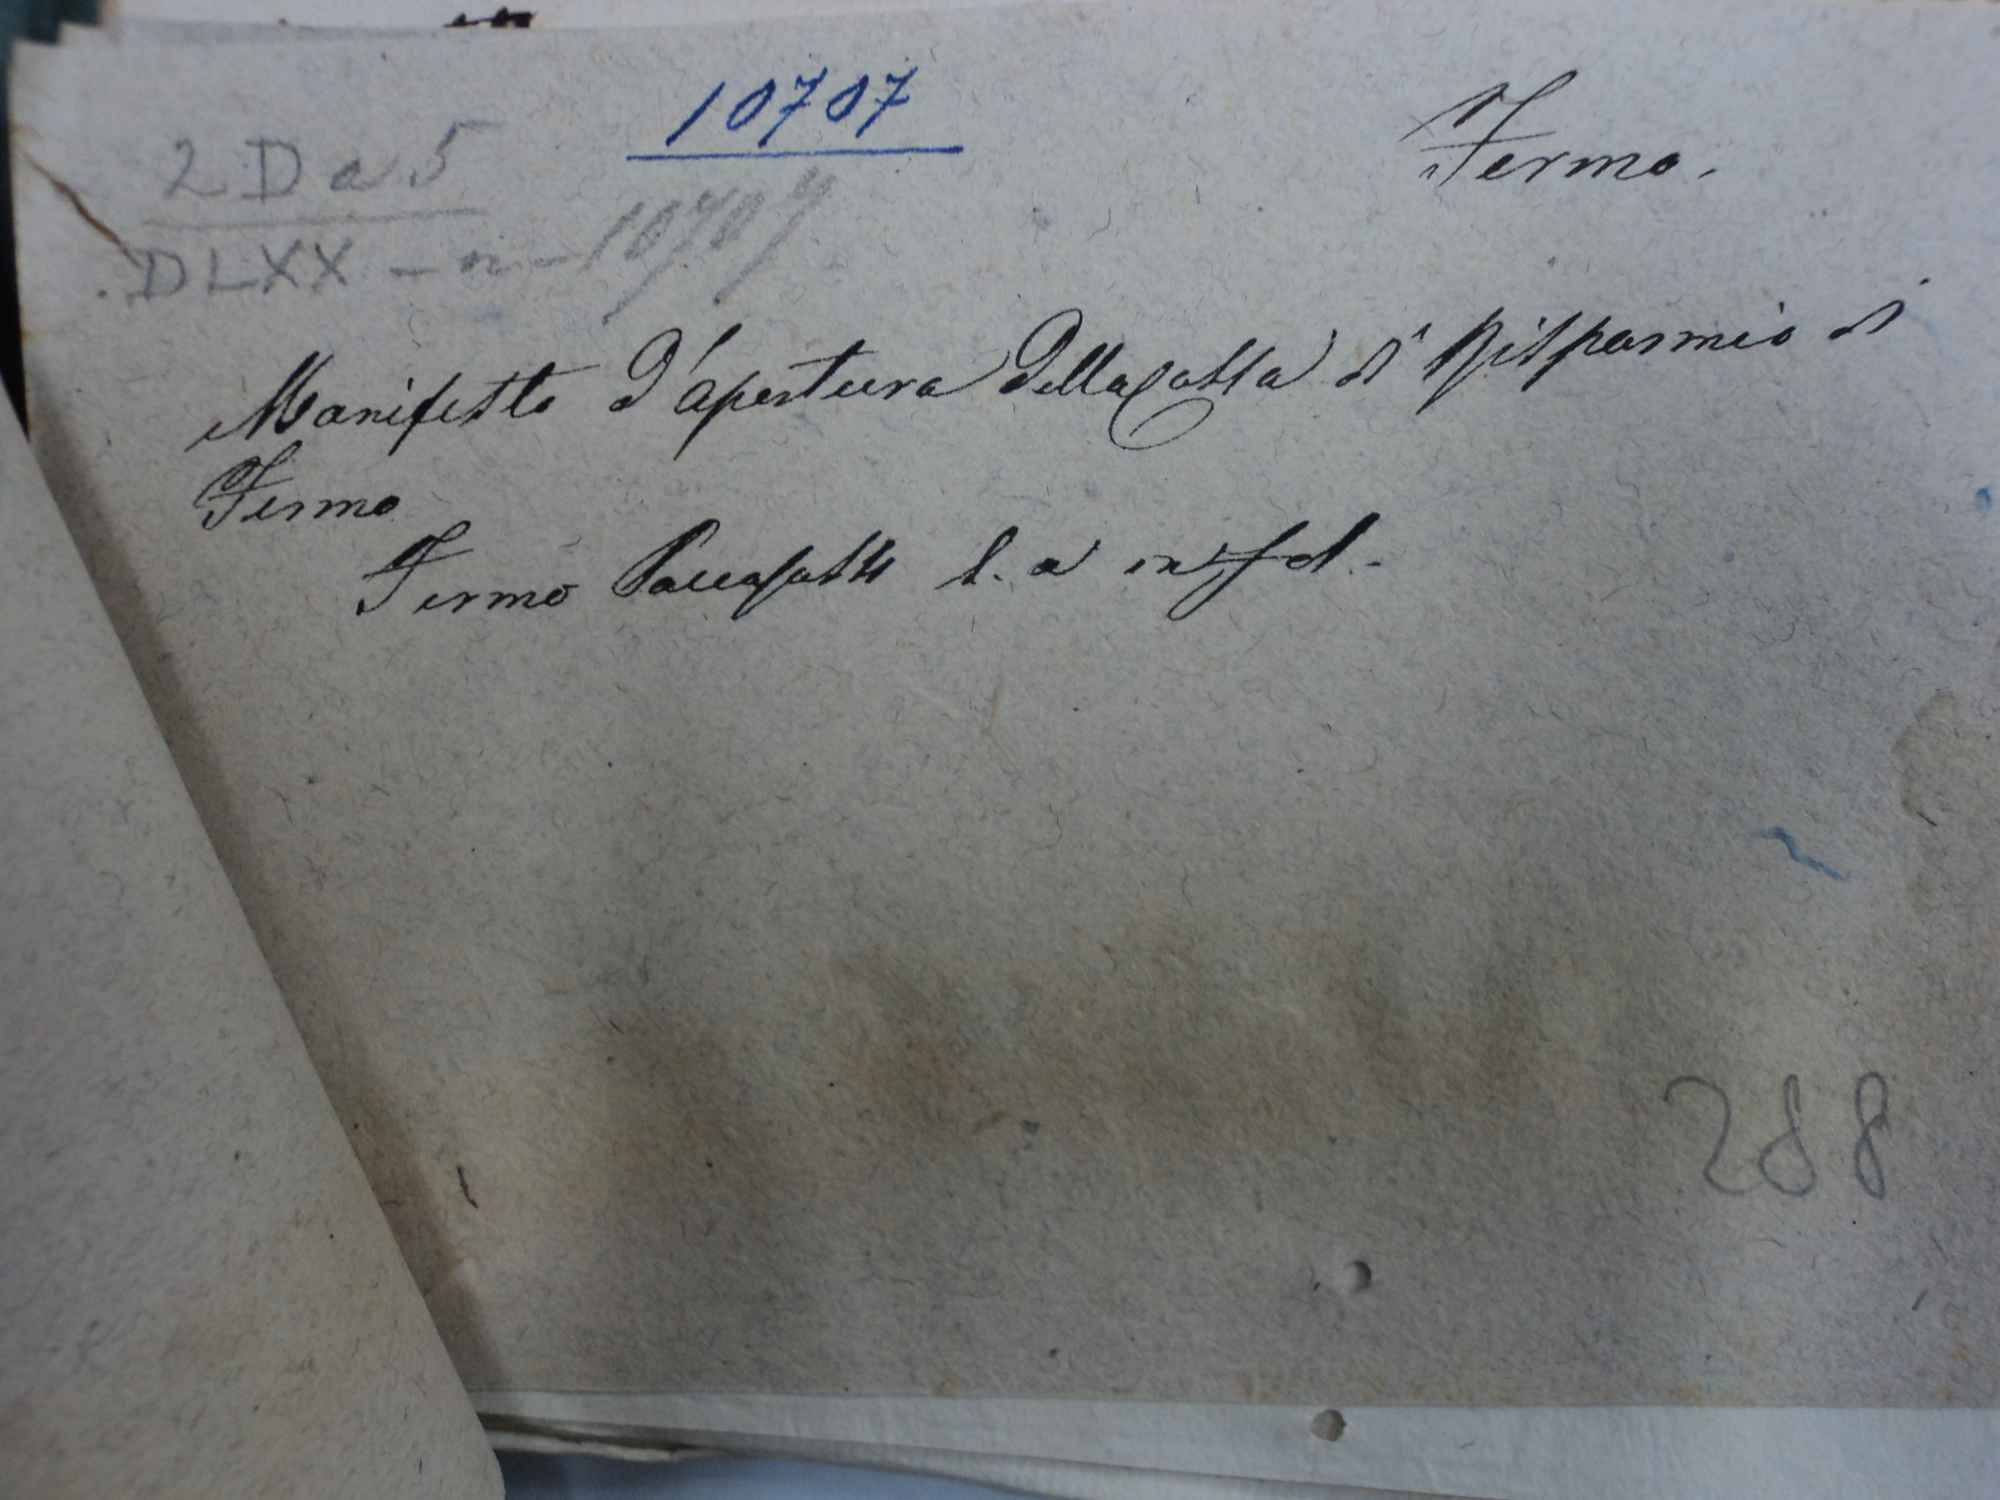 10707
Fermo.
2 D a 5
DLXX - n - 10707
Manifesto d'apertura della Cassa di Risparmio di
Fermo
Fermo Paccasassi s. a in f ol.
288